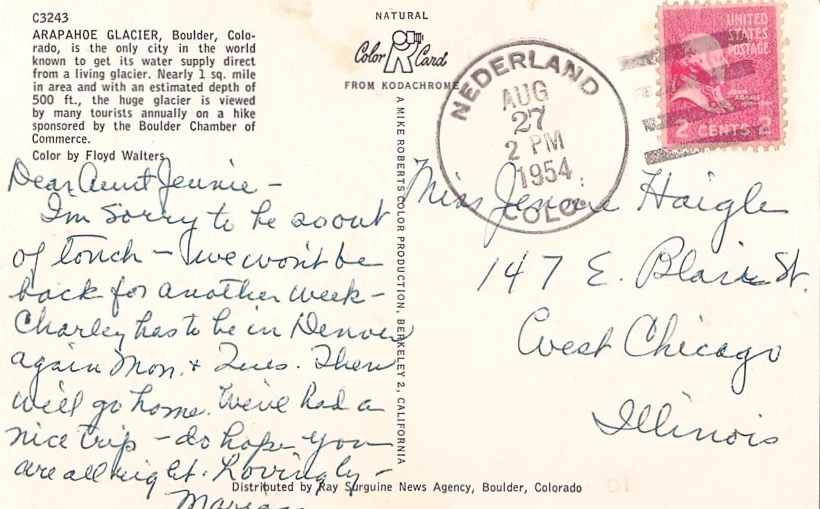 C3243
ARAPAHOE GLACIER, Boulder, Colo-
rado, is the only city in the world
known to get its water supply direct
from a living glacier. Nearly 1 sq. mile
in area and with an estimated depth of
500 ft., the huge glacier is viewed
by many tourists annually on a hike
sponsored by the Boulder Chamber of
Commerce.
Color by Floyd Walters
NATURAL
Color Card
FROM KODACHROME
A MIKE ROBERTS COLOR PRODUCTION, BERKELEY 2, CALIFORNIA
NEDERLAND
AUG
27
2 PM
1954
COLO.
UNITED
STATES
POSTAGE
2 CENTS 2
Dear Aunt Jennie –
I'm sorry to be so out
of touch – we won't be
back for another week –
Charley has to be in Denver
again Mon. & Tues. Then
will go home. We've had a
nice trip – do hope you
are all right. Lovingly –
Miss Jennie Haigle
147 E. Blair St.
West Chicago
Illinois
Distributed by Ray Surguine News Agency, Boulder, Colorado